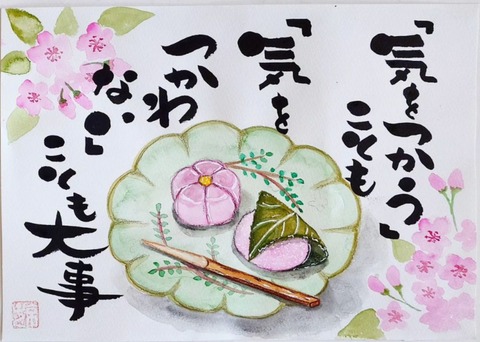 「気をつかう」
ことも
「気を
つかわ
ない」
ことも大事